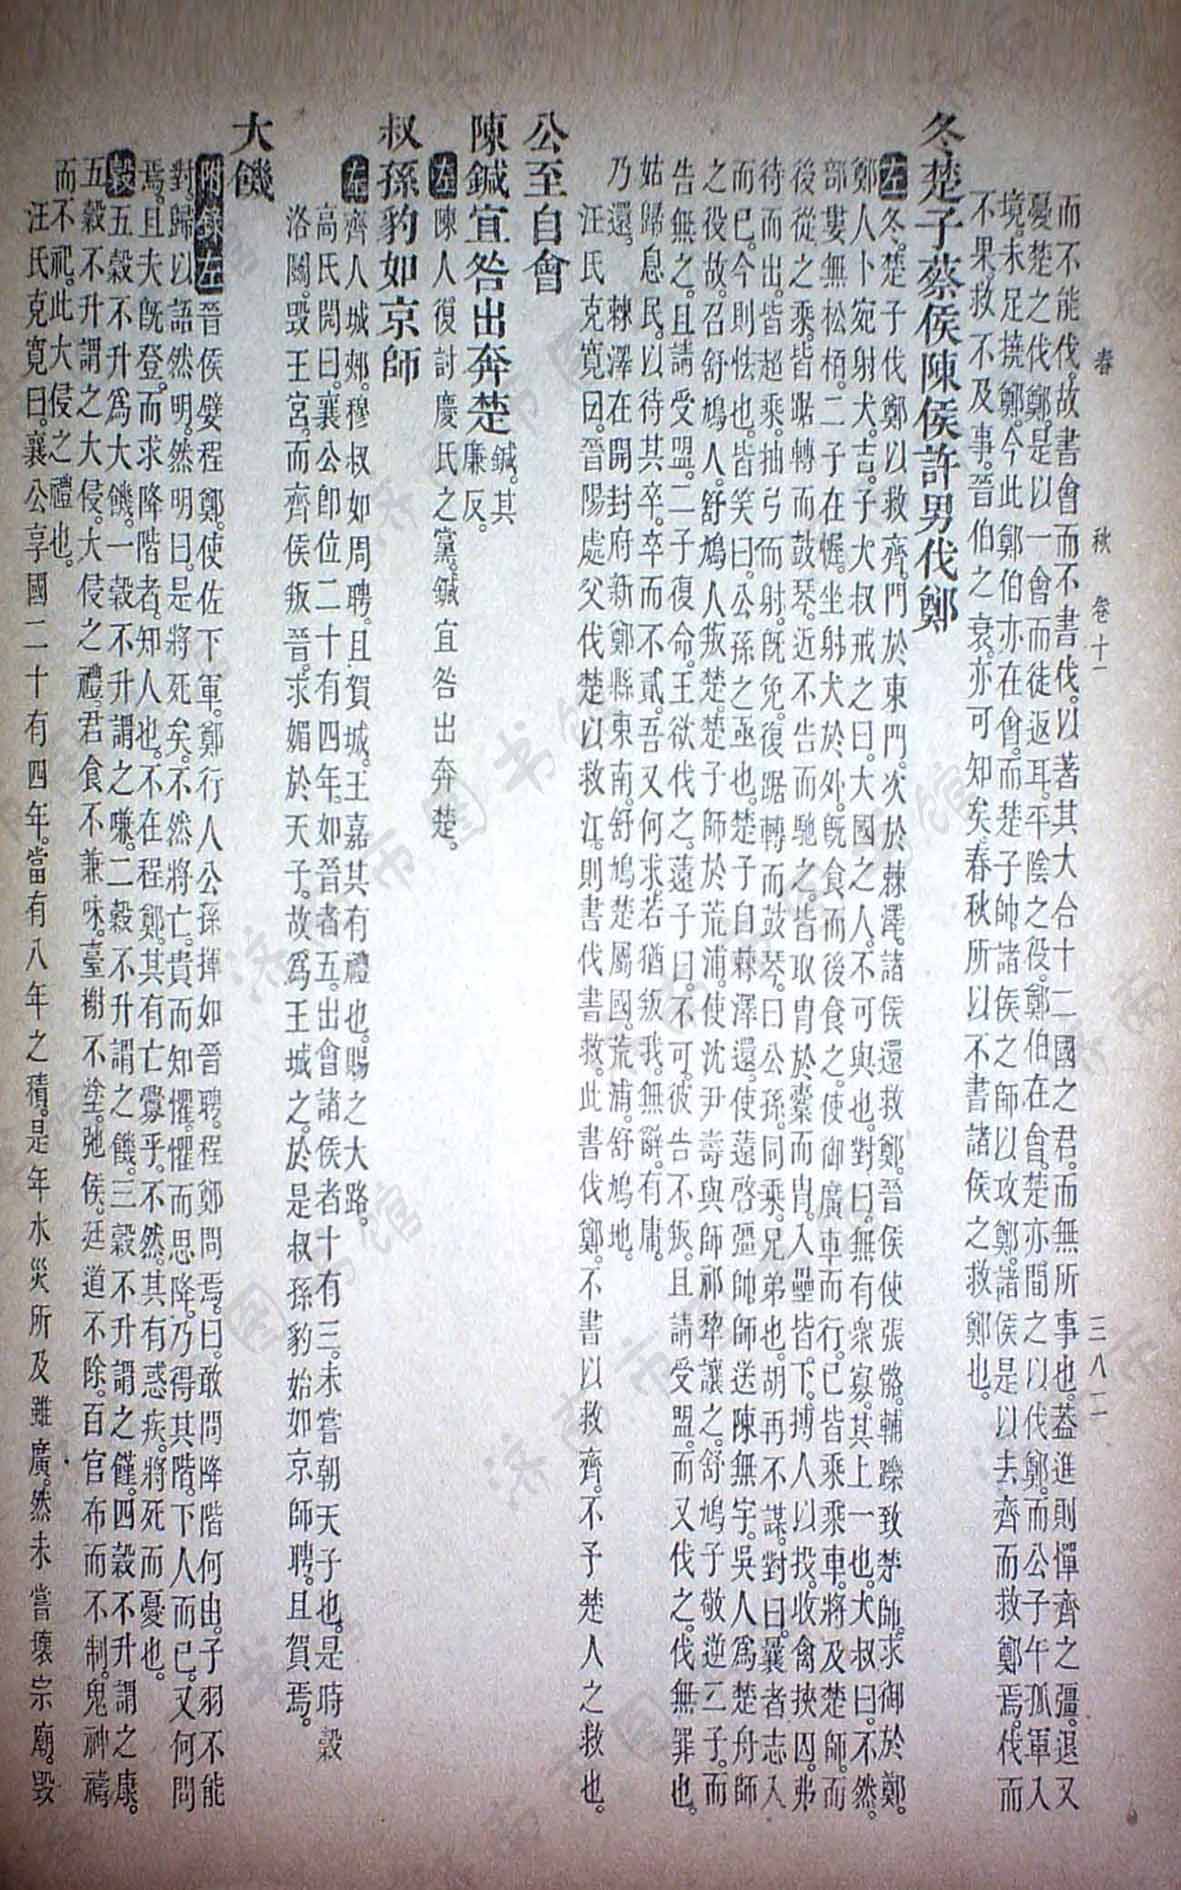 春 秋 卷十一 三八二
而不能伐故書會而不書伐以著其大合十二國之君而無所事也蓋進則憚齊之彊退又
憂楚之伐鄭是以一會而徒返耳平陰之役鄭伯在會楚亦間之以伐鄭而公子午孤軍入
境未足撓鄭今此鄭伯亦在會而楚子帥諸侯之師以攻鄭諸侯是以去齊而救鄭焉伐而
不果救不及事晉伯之衰亦可知矣春秋所以不書諸侯之救鄭也
冬楚子蔡侯陳侯許男伐鄭
左冬楚子伐鄭以救齊門於東門次於棘澤諸侯還救鄭晉侯使張骼輔躒致楚師求御於鄭
鄭人卜宛射犬吉子大叔戒之曰大國之人不可與也對曰無有衆寡其上一也大叔曰不然
部婁無松栢二子在幄坐射犬於外既食而後食之使御廣車而行已皆乘乘車將及楚師而
後從之乘皆踞轉而鼓琴近不告而馳之皆取胄於櫜而胄入壘皆下搏人以投收禽挾囚弗
待而出皆超乘抽弓而射既免復踞轉而鼓琴曰公孫同乘兄弟也胡再不謀對曰曩者志入
而已今則怯也皆笑曰公孫之亟也楚子自棘澤還使薳啓彊帥師送陳無宇吳人爲楚舟師
之役故召舒鳩人舒鳩人叛楚楚子師於荒浦使沈尹壽與師祁犂讓之舒鳩子敬逆二子而
告無之且請受盟二子復命王欲伐之薳子曰不可彼告不叛且請受盟而又伐之伐無罪也
姑歸息民以待其卒卒而不貳吾又何求若猶叛我無辭有庸
乃還 棘澤在開封府新鄭縣東南舒鳩楚屬國荒浦舒鳩地
汪氏克寬曰晉陽處父伐楚以救江則書伐書救此書伐鄭不書以救齊不予楚人之救也
公至自會
陳鍼宜咎出奔楚 鍼其廉反
左陳人復討慶氏之黨鍼宜咎出奔楚
叔孫豹如京師
左齊人城郟穆叔如周聘且賀城王嘉其有禮也賜之大路
高氏閌曰襄公卽位二十有四年如晉者五出會諸侯者十有三未嘗朝天子也是時穀
洛鬭毀王宮而齊侯叛晉求媚於天子故爲王城之於是叔孫豹始如京師聘且賀焉
大饑
附錄左晉侯嬖程鄭使佐下軍鄭行人公孫揮如晉聘程鄭問焉曰敢問降階何由子羽不能
對歸以語然明然明曰是將死矣不然將亡貴而知懼懼而思降乃得其階下人而已又何問
焉且夫既登而求降階者知人也不在程鄭其有亡釁乎不然其有惑疾將死而憂也
穀五穀不升爲大饑一穀不升謂之嗛二穀不升謂之饑三穀不升謂之饉四穀不升謂之康
五穀不升謂之大侵大侵之禮君食不兼味臺榭不塗弛侯廷道不除百官布而不制鬼神禱
而不祀此大侵之禮也
汪氏克寬曰襄公享國二十有四年當有八年之積是年水災所及雖廣然未嘗壞宗廟毀